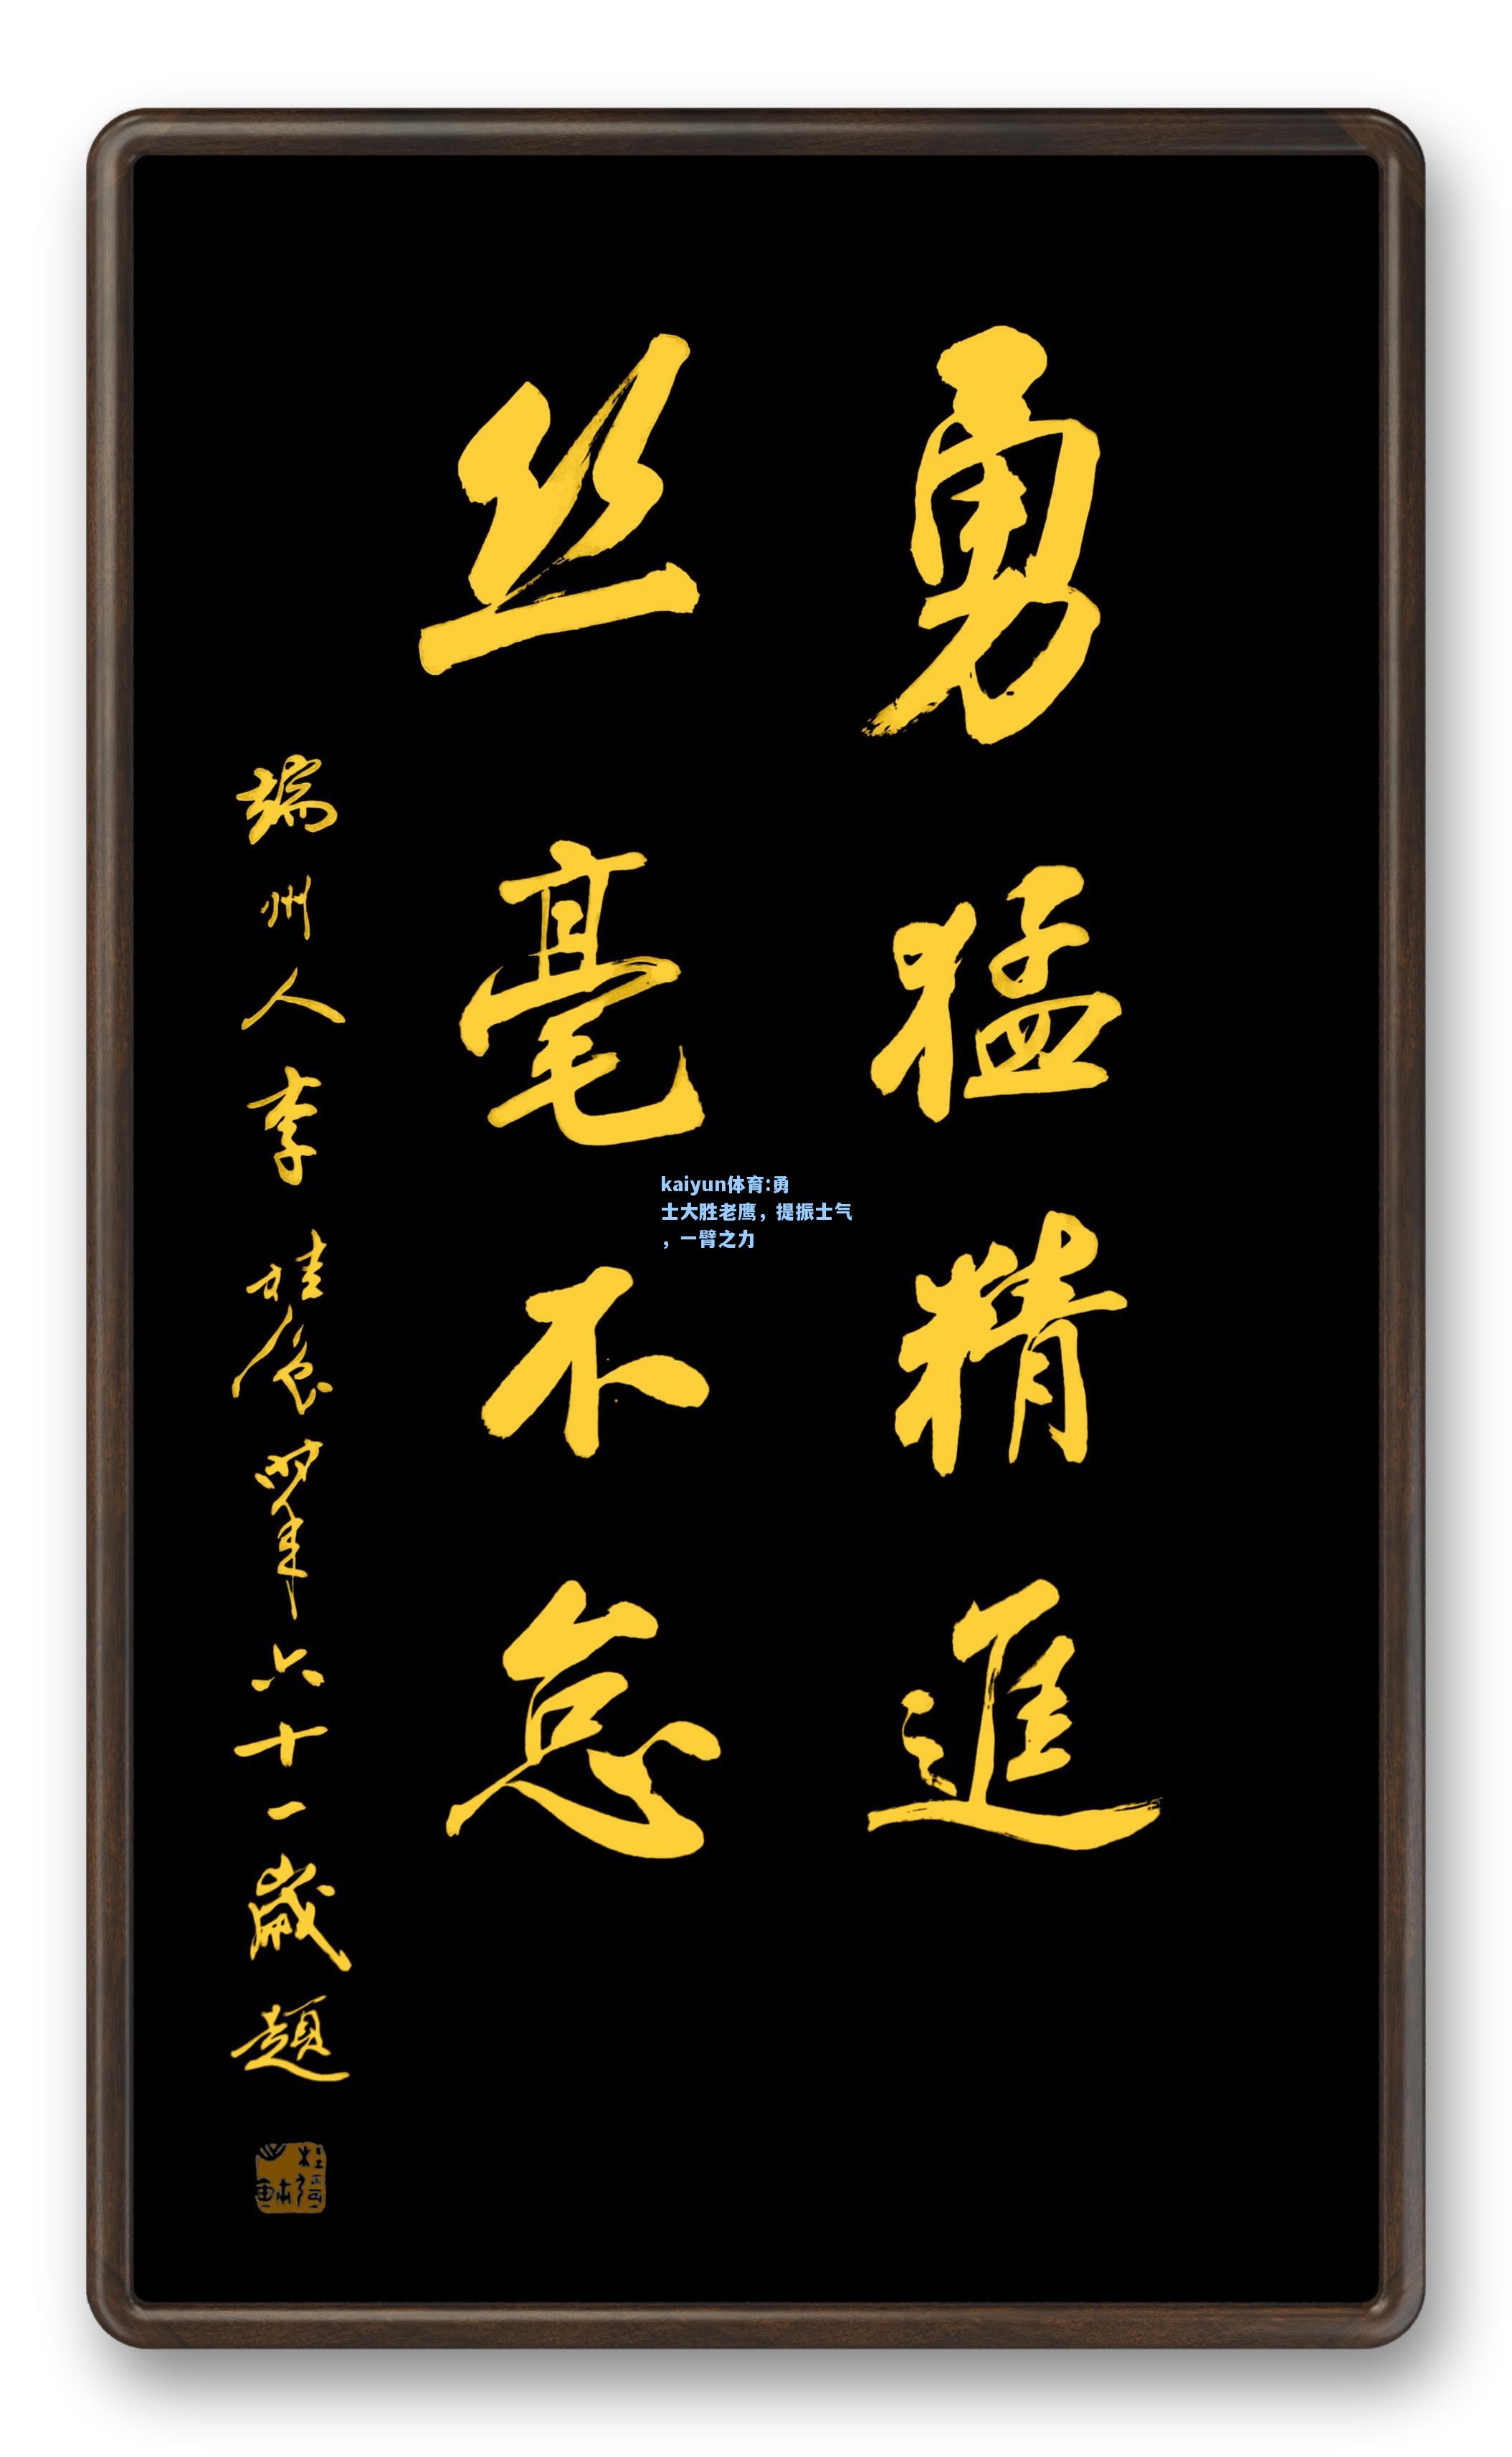 勇猛精進
丝毫不怠
瑞州人李桂原肇六十一歲題
kaiyun体育:勇
士大胜老鹰，提振士气
，一臂之力